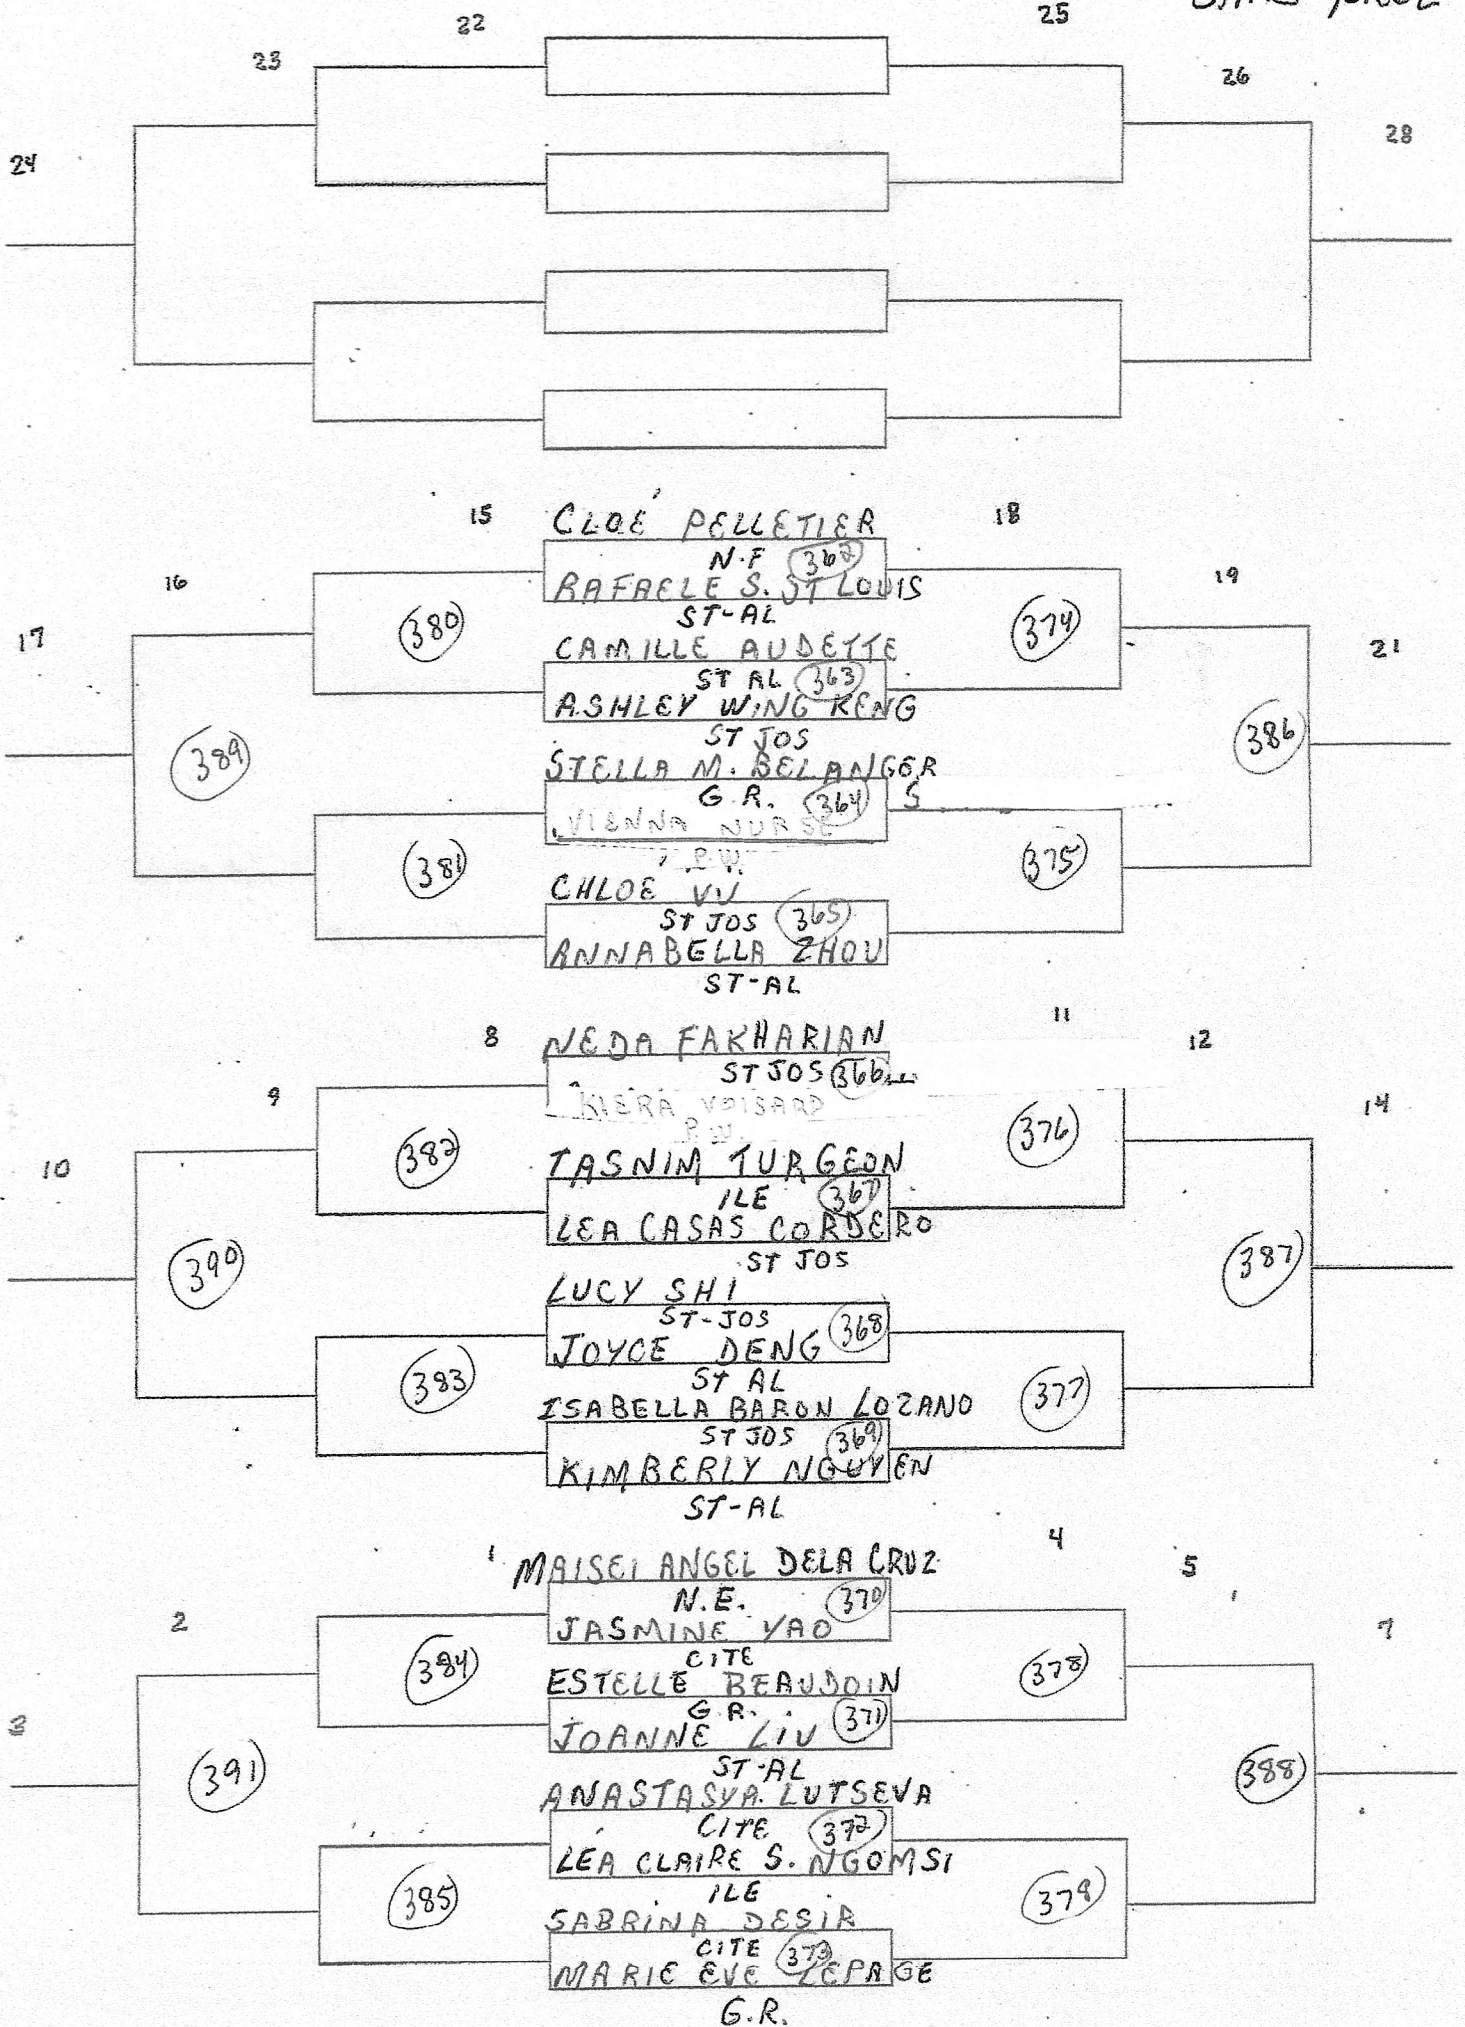 22
25
23
26
24
28
15
CLOÉ PELLETIER
18
N.F 362
16
RAFAELE S. ST LOUIS
19
ST-AL
380
374
17
CAMILLE AUDETTE
21
ST AL 363
ASHLEY WING KENG
ST JOS
389
386
STELLA M. BELANGER
G.R. 364 S
VIENNA NURSE
P.W.
381
375
CHLOÉ VU
ST JOS 365
ANNABELLA ZHOU
ST-AL
8
NEDA FAKHARIAN
11
12
ST JOS 366
9
KIERA VOISARD
14
P.W.
382
376
10
TASNIM TURGEON
ILE 367
LEA CASAS CORDERO
ST JOS
390
387
LUCY SHI
ST-JOS
JOYCE DENG 368
ST AL
383
377
ISABELLA BARON LOZANO
ST JOS 369
KIMBERLY NGUYEN
ST-AL
1
MAISEI ANGEL DELA CRUZ
4
5
N.E. 370
2
JASMINE YAO
7
CITE
384
378
ESTELLE BEAUDOIN
G.R. 371
3
JOANNE LIU
ST-AL
391
388
ANASTASYA LUTSEVA
CITE 372
LÉA CLAIRE S. NGOMSI
ILE
385
379
SABRINA DESIR
CITE 373
MARIE EVE LEPAGE
G.R.